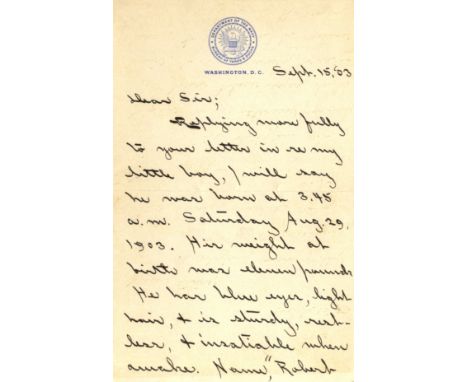 DEPARTMENT OF THE NAVY
WASHINGTON, D. C.
Sept. 15, '03
Dear Sir;
Replying more fully
to your letter in re my
little boy, I will say
he was born at 3.45
a.m. Saturday Aug. 29,
1903. His weight at
birth was eleven pounds
He has blue eyes, light
hair, & is sturdy, rest-
less, & insatiable when
awake. Name, "Robert